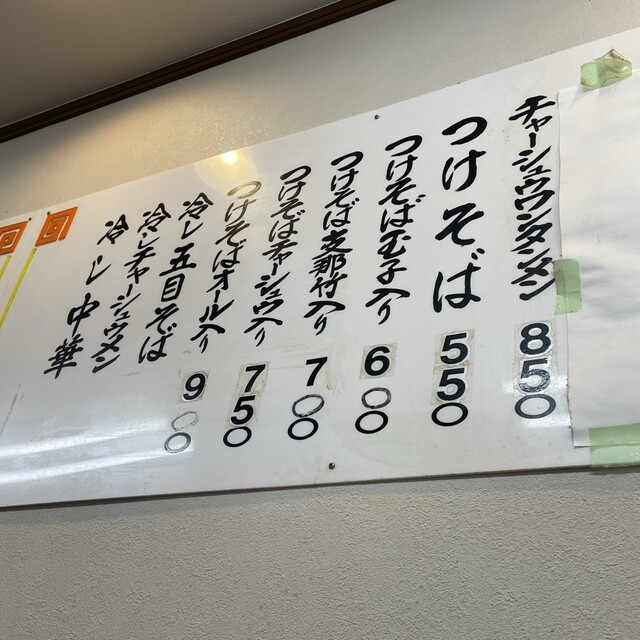 チャーシュウワンタンメン 850
つけそば 550
つけそば玉子入り 600
つけそば支那竹入り 700
つけそばチャーシュウ入り 750
つけそばオール入り 900
冷し五目そば
冷しチャーシュウメン
冷し中華